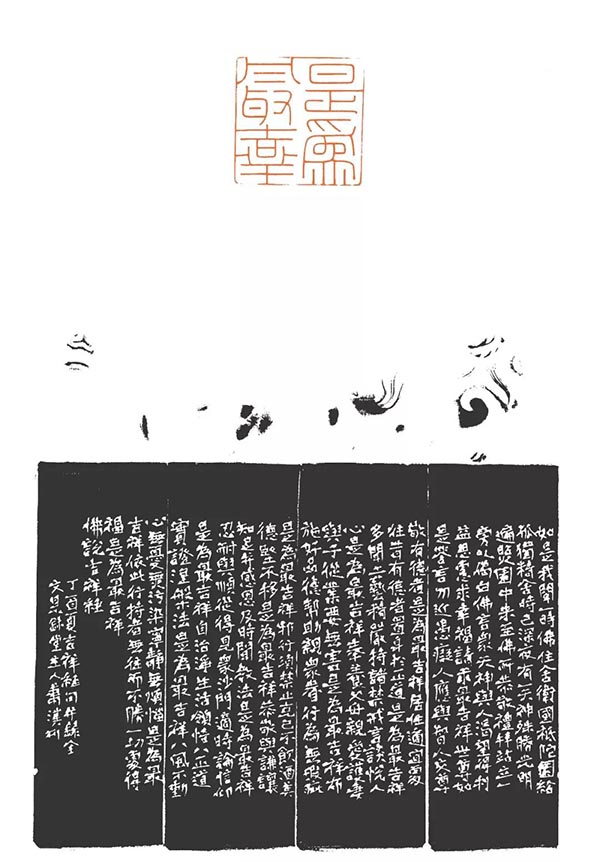 是為最
如是我聞一時佛住舍衛國祇陀園給
孤獨精舍時已深夜有一天神殊勝光明
遍照園中來至佛所恭敬禮拜站立一
旁以偈白佛言眾天神與人渴望得利
益思慮求幸福請示最吉祥世尊如
是答言勿近愚癡人應與智人交尊
敬有德者是為最吉祥居住適宜處
往昔有德者置身於正道是為最吉祥
多聞工藝精嚴持諸禁戒言談悅人
心是為最吉祥奉養父母親愛護妻
與子從業要無害是為最吉祥布
施好品德幫助親眾眷行為無瑕疵
是為最吉祥邪行須禁止克己不飲酒美
德堅不移是為最吉祥恭敬與謙讓
知足并感恩及時聞教法是為最吉祥
忍耐與順從得見眾沙門適時論信仰
是為最吉祥自治淨生活領悟八正道
實證涅槃法是為最吉祥八風不動
心無憂無污染寧靜無煩惱是為最
吉祥依此行持者無往而不勝一切處得
福是為最吉祥
佛說吉祥經
丁酉夏吉祥結同并錄全
文思餘堂主人蕭淇